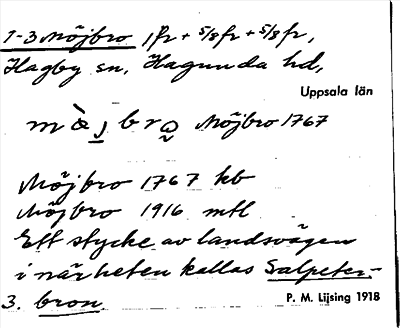 1-3 Möjbro 1 fr + 5/8 fr + 5/8 fr,
Hagby sn, Hagunda hd,
Uppsala län
Möjbro 1767
Möjbro 1767 kb
Möjbro 1916 mtl
Ett stycke av landsvägen
i närheten kallas Salpeter-
3. bron
P. M. Lijsing 1918